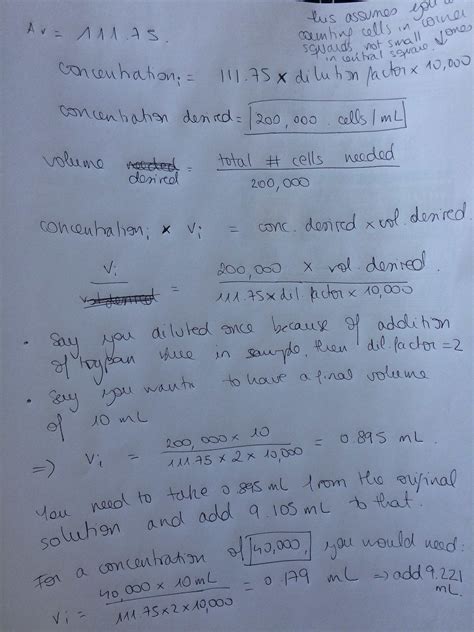 Av = 111.75.
this assumes you a
counting cells in corner
squares not small
in central square. ones
concentration; = 111.75 × dilution factor × 10,000
concentration desired = 200,000 cells/mL
volume needed desired = total # cells needed
200,000
concentration; × Vi = conc. desired × vol. desired.
Vi
vol desired = 200,000 × vol. desired.
111.75 × dil. factor × 10,000
• Say you diluted once because of addition
of trypan blue in sample, then dil. factor = 2
• Say you want to have a final volume
of 10 mL
⇒ Vi = 200,000 × 10
111.75 × 2 × 10,000 = 0.895 mL.
You need to take 0.895 mL from the original
solution and add 9.105 mL to that.
For a concentration of 40,000, you would need:
Vi = 40,000 × 10 mL
111.75 × 2 × 10,000 = 0.179 mL ⇒ add 9.221
mL.